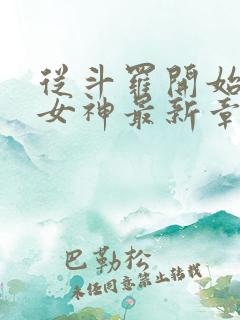 從斗羅開始
女神最新章
巴勒松
未經同意禁止轉載